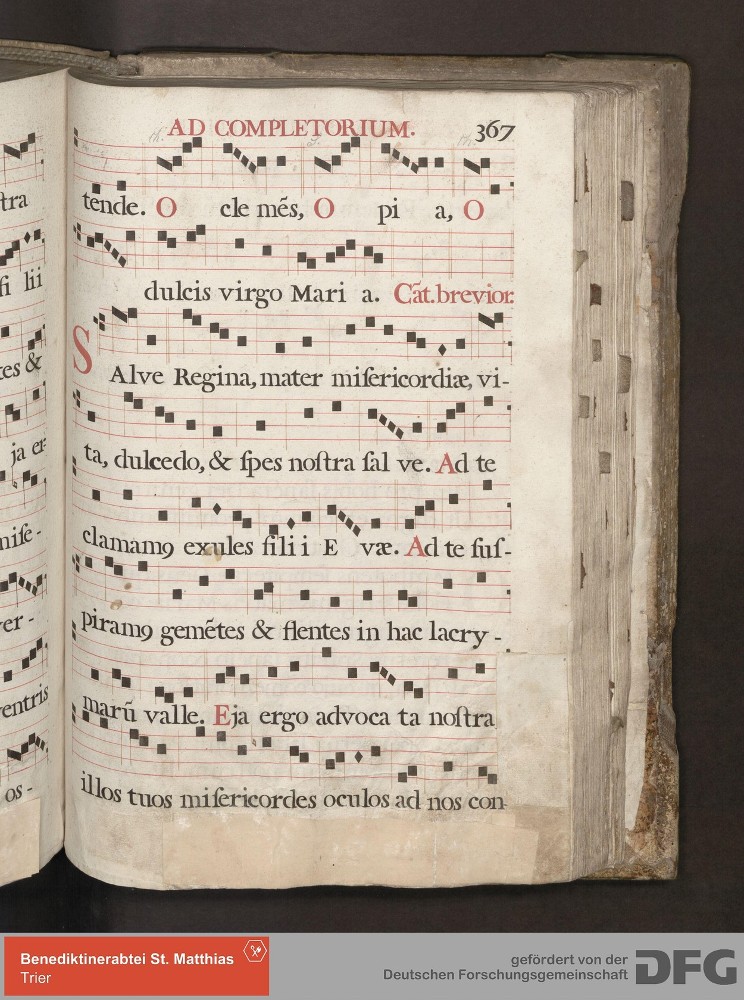 AD COMPLETORIUM. 367
tende. O cle mẽs, O pi a, O
dulcis virgo Mari a. Cãt. brevior.
SAlve Regina, mater miſericordiæ, vi-
ta, dulcedo, & ſpes noſtra ſal ve. Ad te
clamamꝰ exules fili i E væ. Ad te ſuſ-
piramꝰ gemẽtes & flentes in hac lacry -
marũ valle. Eja ergo advoca ta noſtra
illos tuos miſericordes oculos ad nos con-
ſtra
fi lii
tes &
ja er-
miſe-
er-
ventris
os-
Benediktinerabtei St. Matthias
Trier
gefördert von der
Deutschen Forschungsgemeinschaft
DFG